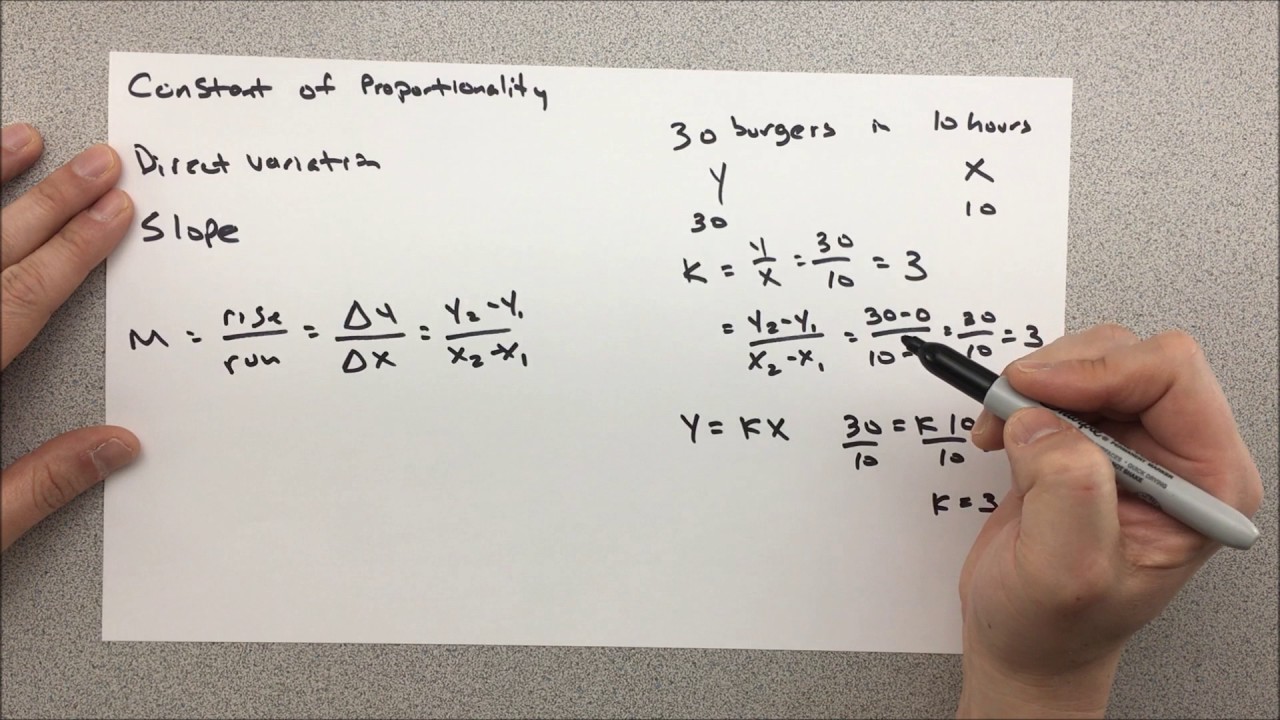 Constant of Proportionality
Direct variation
Slope
M = rise/run = ΔY/ΔX = Y₂-Y₁/X₂-X₁
30 burgers in 10 hours
Y X
30 10
K = Y/X = 30/10 = 3
= Y₂-Y₁/X₂-X₁ = 30-0/10- = 30/10 = 3
Y = KX 30/10 = K 10/10
K = 3